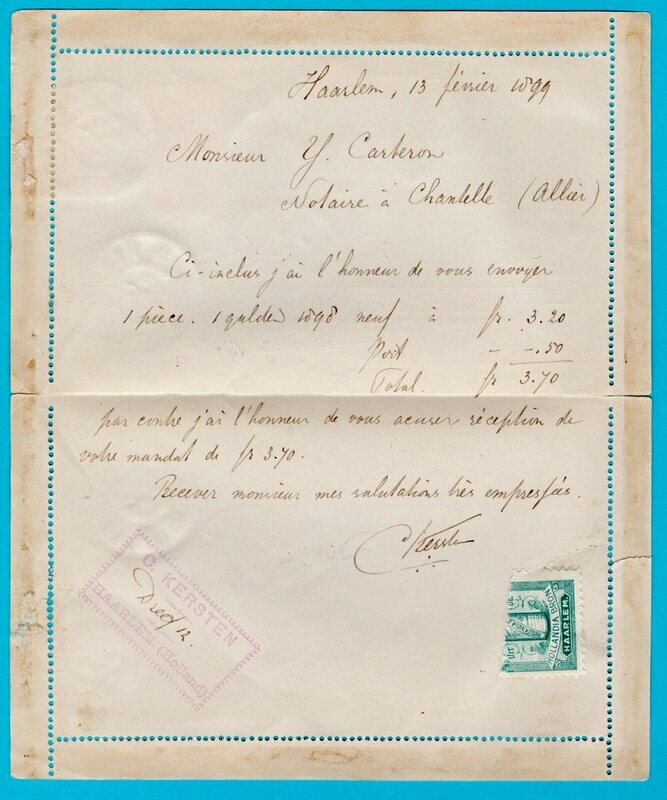 Haarlem, 13 février 1899
Monsieur Y. Carteron
Notaire à Chantelle (Allier)
Ci-inclus j'ai l'honneur de vous envoyer
1 pièce. 1 gulden 1898 neuf à fr. 3.20
Port - -.50
Total. fr 3.70
par contre j'ai l'honneur de vous acuser réception de
votre mandat de fr 3.70.
Recever monsieur mes salutations très empressées.
CKersten
C. KERSTEN
HAARLEM (Holland)
12.
HOLLANDIA BRON
HAARLEM.